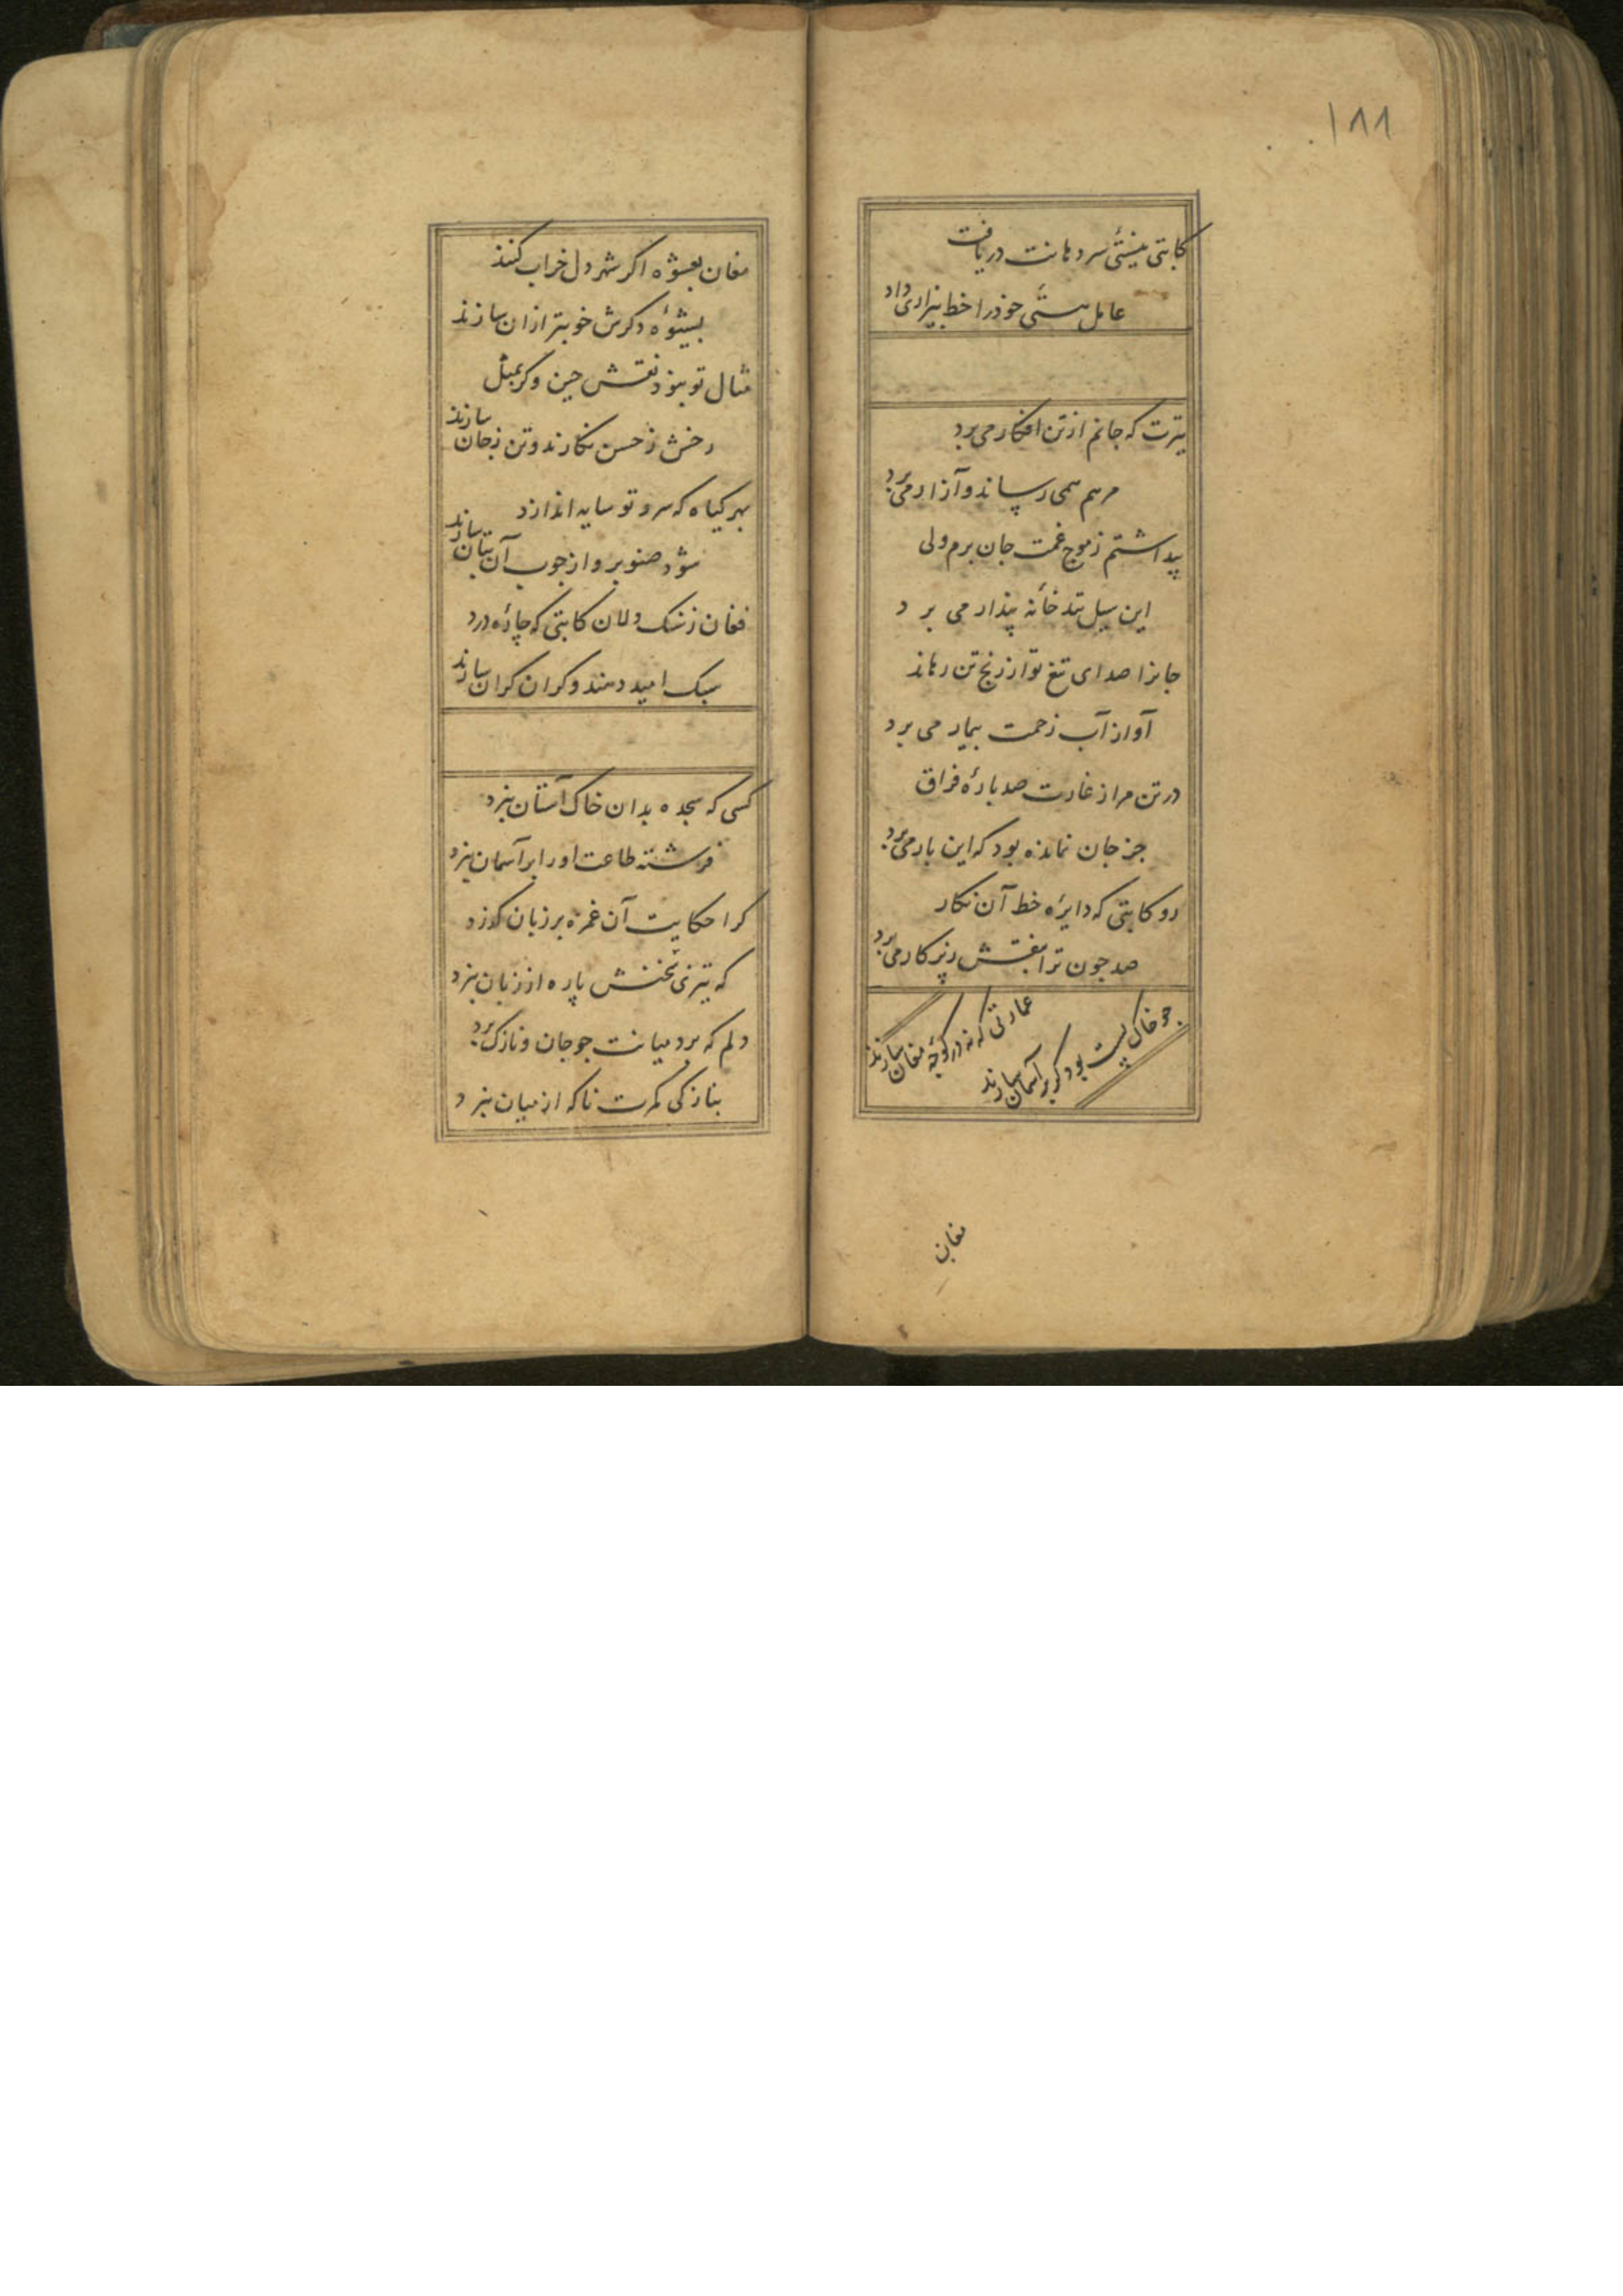 ۱۸۸
کاتبی نیستی سر دهانت دریافت
عامل هستی خود را خط بیزاری داد
تیرت که جانم از تن افکار می برد
مرهم همی رساند و آزار می برد
پنداشتم ز موج غمت جان برم ولی
این سیل تند خانه پندار می برد
جانرا صدای تیغ تو از رنج تن رهاند
آواز آب زحمت بیمار می برد
در تن مرا ز غارت صد باره فراق
جز جان نمانده بود که این بار می برد
رو کاتبی که دایره خط آن نکار
صد چون ترا بنقش ز پرکار می برد
عمارتی که نه در کوچه مغان سازند
جو خاک پست بود کر بر آسمان سازند
مغان
مغان بعشوه اکر شهر دل خراب کنند
بشیوه دکرش خوبتر از ان سازند
مثال تو نبود نقش چین وکر بمثل
رخش ز حسن نکارند و تن ز جان سازند
بهر کیاه که سرو تو سایه اندازد
شود صنوبر و از چوب آن بتان سازند
فغان ز سنک دلان کاتبی که چاره درد
سبک امید دهند و کران کران سازند
کسی که سجده بدان خاک آستان نبرد
فرشته طاعت اورا بر آسمان نبرد
کرا حکایت آن غمزه بر زبان کذرد
که تیزی سخنش پاره از زبان نبرد
دلم که برد میانت جو جان و نازک برد
بنازکی کمرت تا که از میان نبرد